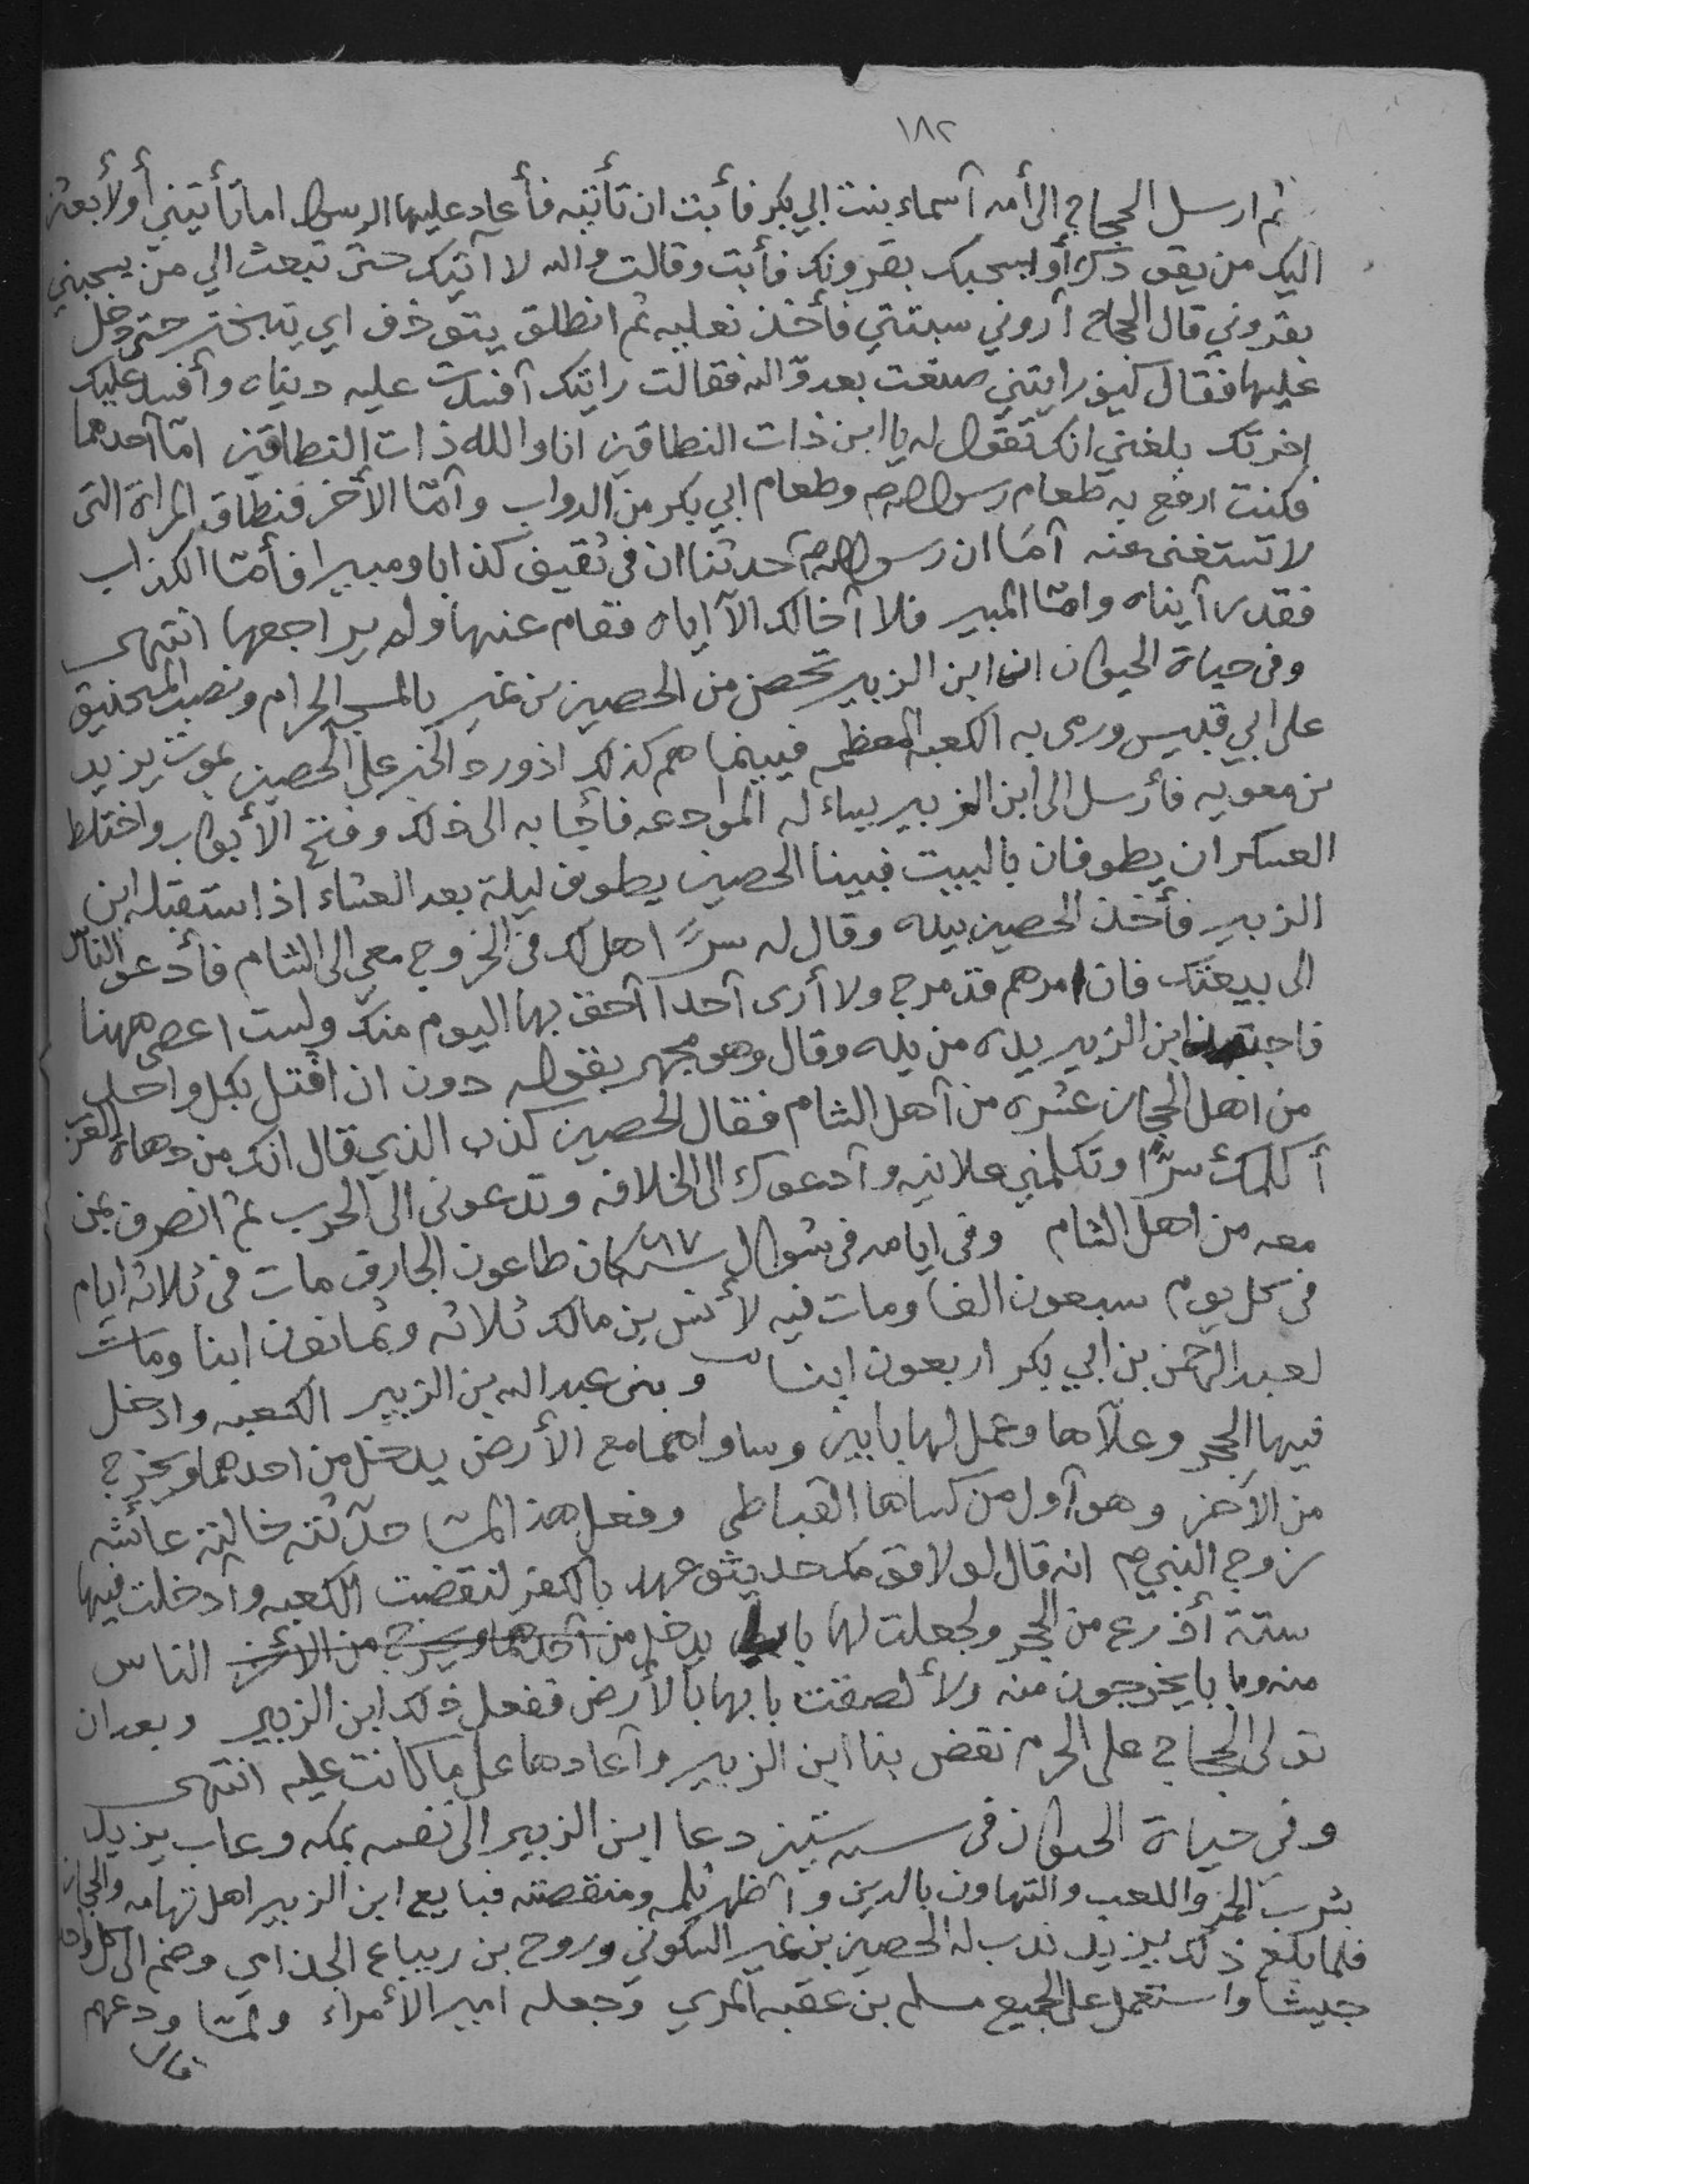 ١٨٢
ثم ارسل الحجاج الى أمه آسماء بنت ابي بكر فأبت ان تأتيه فأعاد عليها الرسول اما تأتيني أو لأبعثن
اليك من يقودك أو يسحبك بقرونك فأبت وقالت والله لا آتيك حتى تبعث الي من يسحبني
بقروني قال الحجاج آروني سبتتي فأخذ نعليه ثم انطلق يتوذف اي يتبختر حتى دخل
عليها فقال كيف رايتني صنعت بعدو الله فقالت رايتك آفسدت عليه دنياه وأفسد عليك
اخرتك بلغني انك تقول له يا ابن ذات النطاقين انا والله ذات النطاقين امّا آحدهما
فكنت ارفع به طعام رسول الله صم وطعام ابي بكر من الدواب وآمّا الأخر فنطاق المراة التى
لا تستغنى عنه آمَا ان رسول الله صم حدثنا ان فى ثقيف كذابا ومبيرا فأمّا الكذاب
فقد رآيناه وامّا المبير فلا آخالك الآ اياه فقام عنها ولم يراجعها انتهى
وفى حياة الحيوان ان ابن الزبير تحصن من الحصين بن نمير بالمسجد الحرام ونصب المنجنيق
على ابي قبيس ورمى به الكعبه المعظمه فبينما هم كذلك اذ ورد الخبر على الحصين بموت يزيد
بن معويه فأرسل الى ابن الزبير يساءله الموادعه فأجابه الى ذلك وفتح الأبواب واختلط
العسكران يطوفان بالبيت فبينا الحصين يطوف ليلة بعد العشاء اذ استقبله ابن
الزبير فأخذ الحصين بيده وقال له سرًا هل لك فى الخروج معي الى الشام فأدعو الناس
الى بيعتك فان امرهم قد مرج ولا أرى آحدا آحق بها اليوم منك ولست اعصى ههنا
فاجتذب ابن الزبير يده من يده وقال وهو يجهر بقوله دون ان اقتل بكل واحد
من اهل الحجاز عشره من آهل الشام فقال الحصين كذب الذي قال انك من دهاة العرب
أكلمك سرًا وتكلمني علانيه وآدعوك الى الخلافه وتدعونى الى الحرب ثم انصرف بمن
معه من اهل الشام وفى ايامه فى شوال سنه كان طاعون الجارف مات فى ثلاثه ايام
فى كل يوم سبعون الفا ومات فيه لأنس بن مالك ثلاثه وثمانون ابنا ومات
لعبد الرحمن بن ابي بكر اربعون ابنا وبنى عبد الله بن الزبير الكعبه وادخل
فيها الحجر وعلّاها وعمل لها بابين وساواهما مع الأرض يدخل من احدهما ويخرج
من الأخر وهو آول من كساها القباطي وفعل هذا لمّا حدّثته خالته عائشه
زوج النبي صم انه قال لولا قومك حديثو عهد بالكفر لنقضت الكعبه وآدخلت فيها
ستة أذرع من الحجر ولجعلت لها بابا يدخل من آحدهما ويخرج من الأخر الناس
منه وبابا يخرجون منه ولألصقت بابها بالأرض ففعل ذلك ابن الزبير وبعد ان
تولى الحجاج على الحرم نقض بنا ابن الزبير وآعادها على ما كانت عليه انتهى
وفي حياة الحيوان فى سنه ستين دعا ابن الزبير الى نفسه بمكه وعاب يزيد
بشرب الخمر واللعب والتهاون بالدين وآظهر ثلمه ومنقصته فبايع ابن الزبير اهل تهامه والحجاز
فلما بلغ ذلك يزيد ندب له الحصين بن نمير السكوني وروح بن زنباع الجذامي وضم الى كل واحد
جيشا واستعمل على الجميع مسلم بن عقبه المري وجعله امير الأمراء ولمّا ودعهم
قال